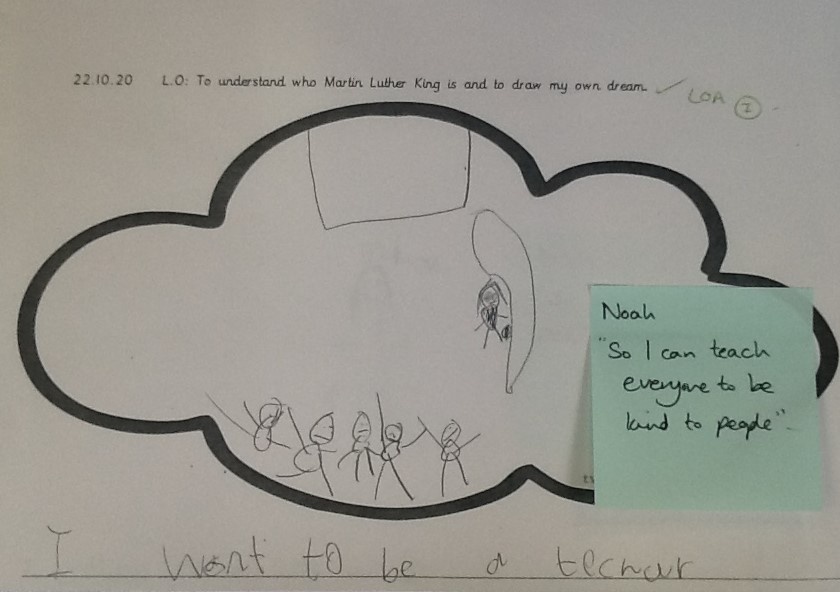 22.10.20 L.O: To understand who Martin Luther King is and to draw my own dream. ✓ LOA ②
Noah
"So I can teach
everyone to be
kind to people"
I want to be a tecHur